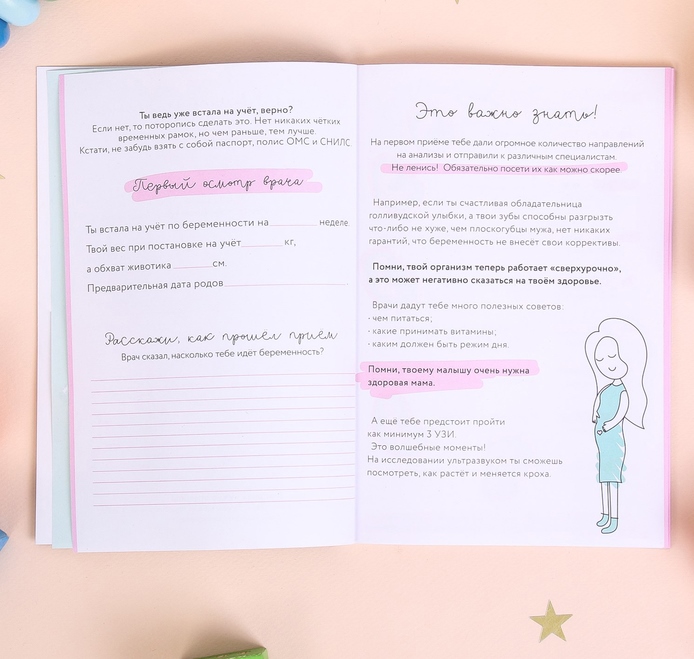 Ты ведь уже встала на учёт, верно?
Если нет, то поторопись сделать это. Нет никаких чётких
временных рамок, но чем раньше, тем лучше.
Кстати, не забудь взять с собой паспорт, полис ОМС и СНИЛС.
Первый осмотр врача
Ты встала на учёт по беременности на неделе.
Твой вес при постановке на учёт кг,
а обхват животика см.
Предварительная дата родов
Расскажи, как прошёл приём
Врач сказал, насколько тебе идёт беременность?
Это важно знать!
На первом приёме тебе дали огромное количество направлений
на анализы и отправили к различным специалистам.
Не ленись! Обязательно посети их как можно скорее.
Например, если ты счастливая обладательница
голливудской улыбки, а твои зубы способны разгрызть
что-либо не хуже, чем плоскогубцы мужа, нет никаких
гарантий, что беременность не внесёт свои коррективы.
Помни, твой организм теперь работает «сверхурочно»,
а это может негативно сказаться на твоём здоровье.
Врачи дадут тебе много полезных советов:
- чем питаться;
- какие принимать витамины;
- каким должен быть режим дня.
Помни, твоему малышу очень нужна
здоровая мама.
А ещё тебе предстоит пройти
как минимум 3 УЗИ.
Это волшебные моменты!
На исследовании ультразвуком ты сможешь
посмотреть, как растёт и меняется кроха.